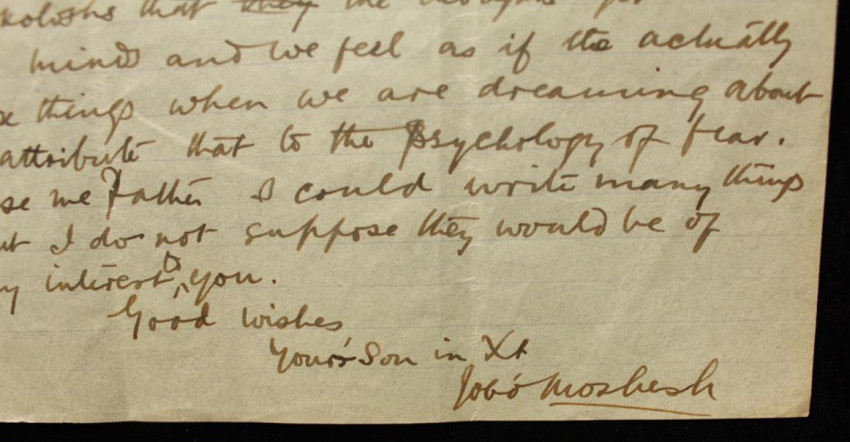 that they the thoughts get
minds and we feel as if the actually
things when we are dreaming about
attribute that to the psychology of fear.
se me Father I could write many things
ut I do not suppose they would be of
ny interest to you.
Good wishes
Yours Son in Xt
Moshesh